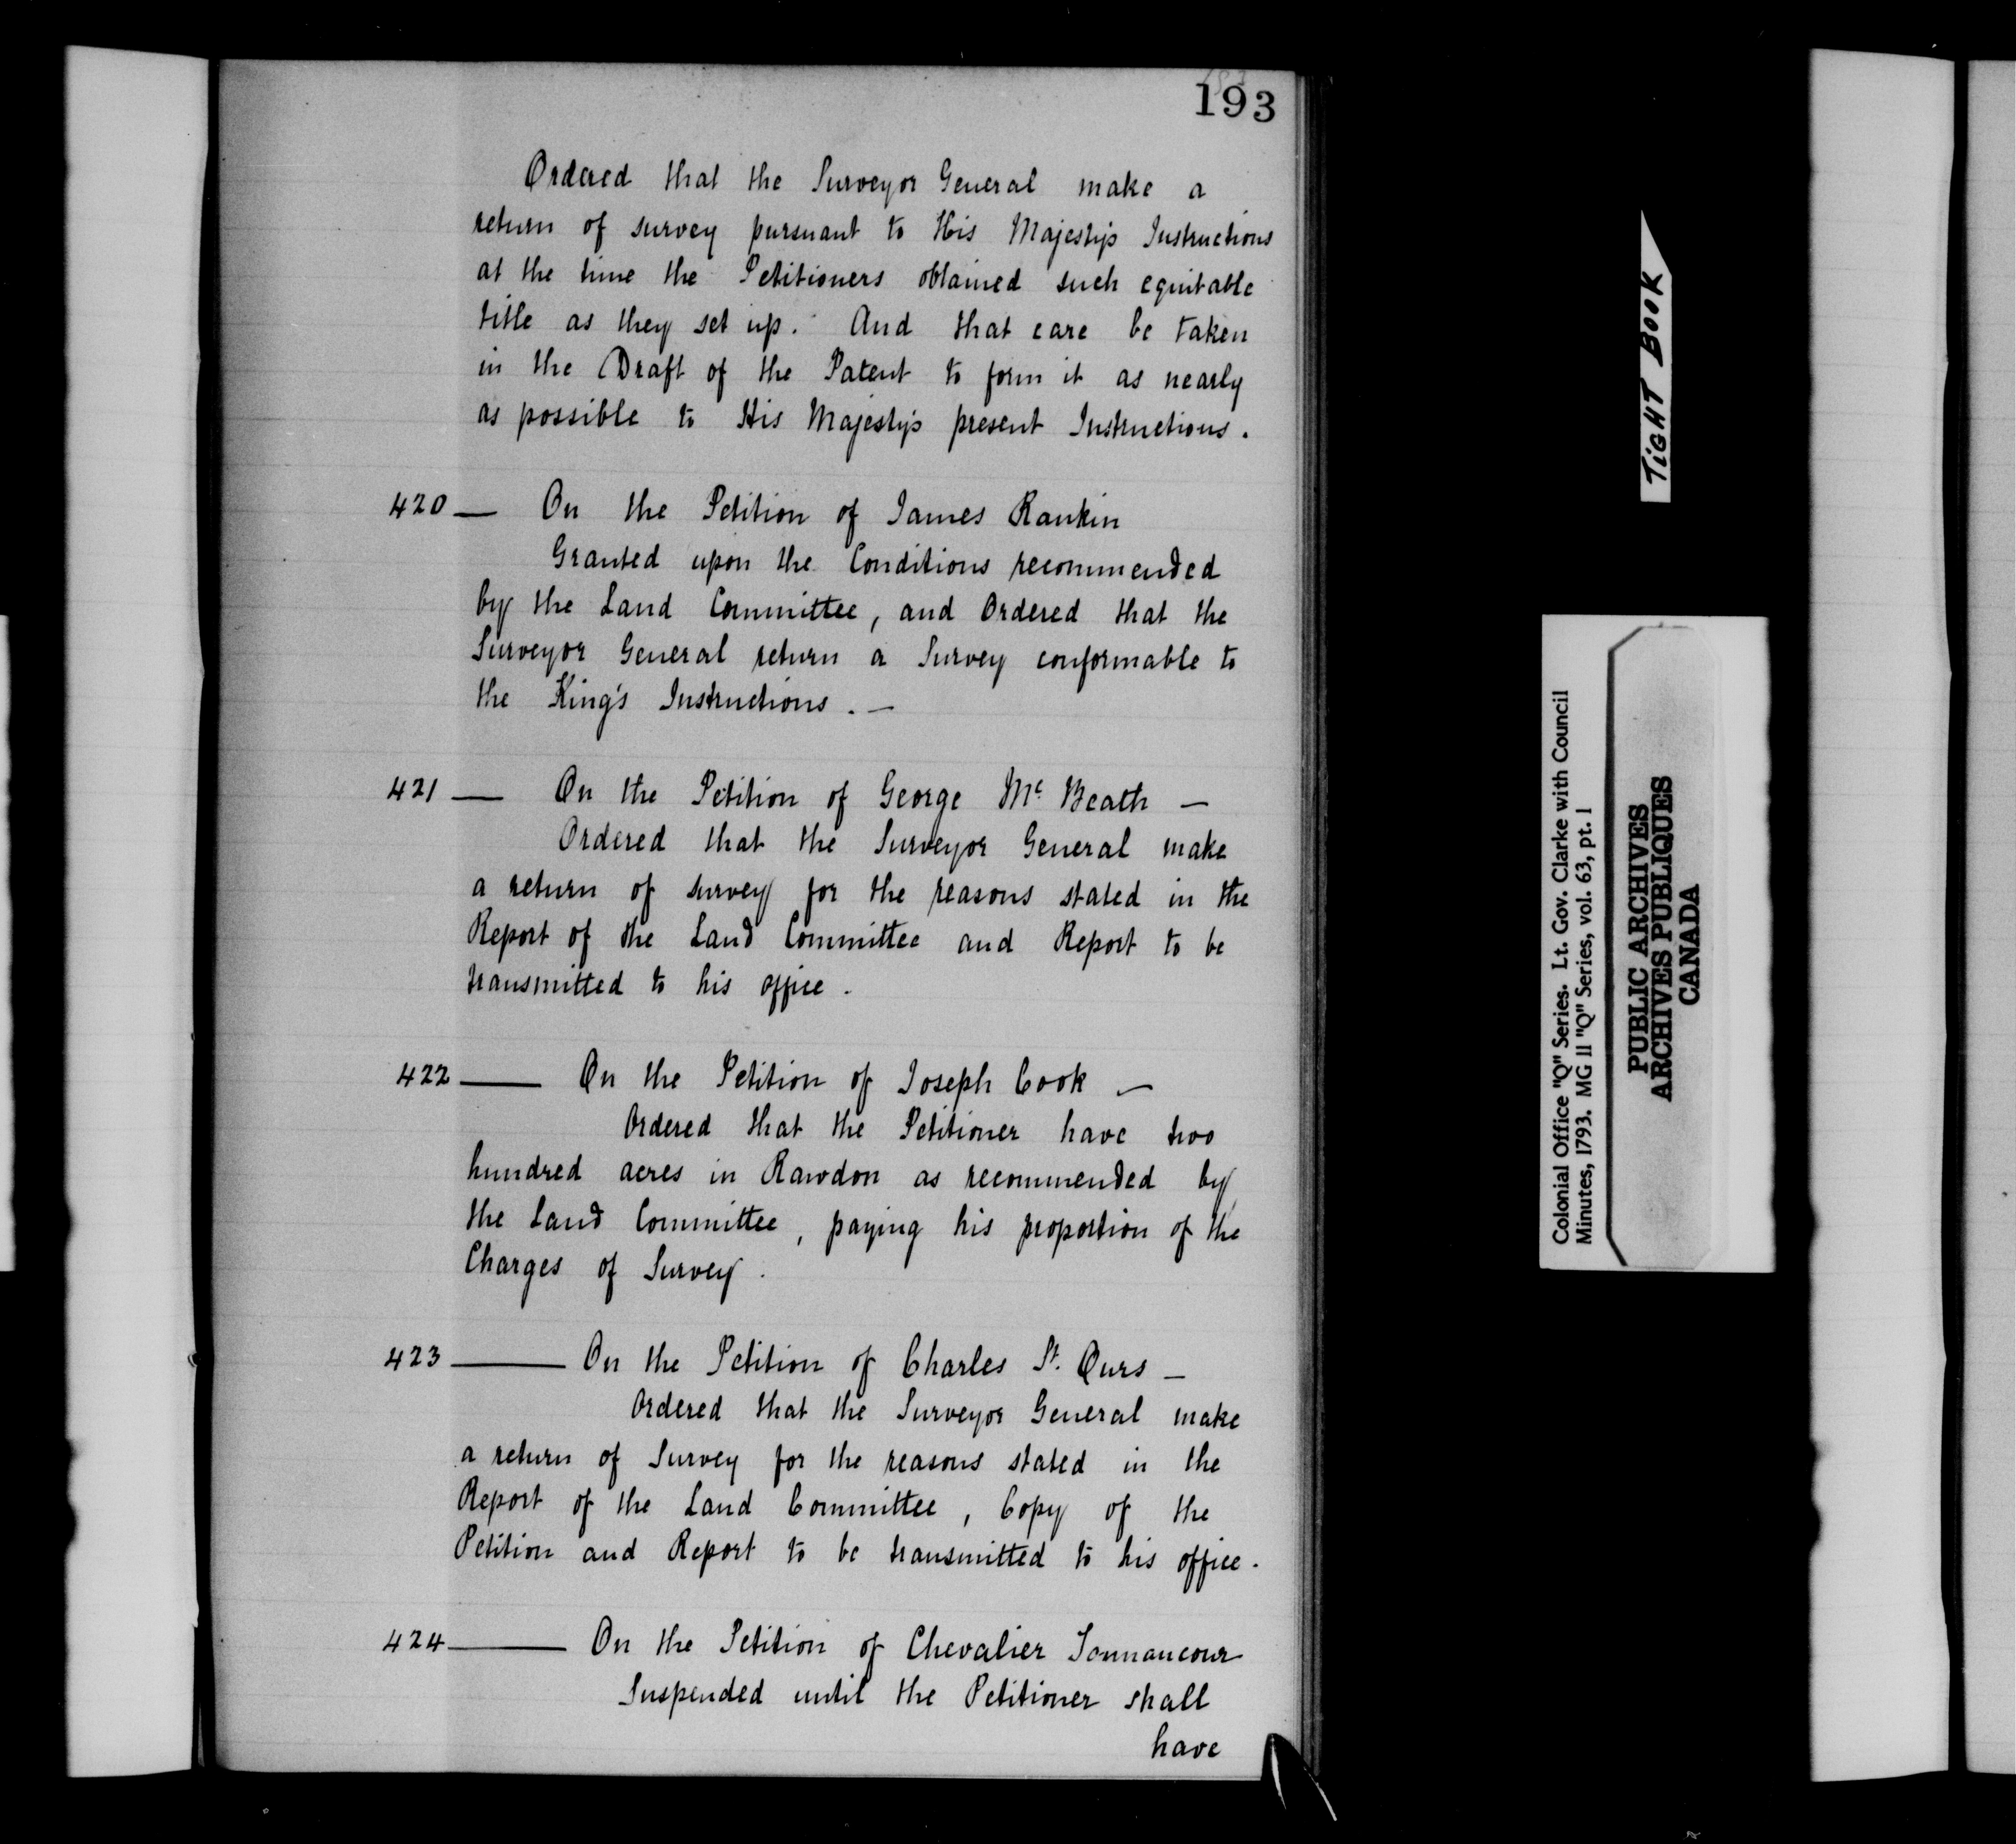 193
Ordered that the Surveyor General make a
return of survey pursuant to His Majesty's Instructions
at the time the Petitioners obtained such equitable
title as they set up. And that care be taken
in the Draft of the Patent to form it as nearly
as possible to His Majesty's present Instructions.
420 — On the Petition of James Rankin
Granted upon the Conditions recommended
by the Land Committee, and Ordered that the
Surveyor General return a Survey conformable to
the King's Instructions. —
421 — On the Petition of George Mc Beath —
Ordered that the Surveyor General make
a return of survey for the reasons stated in the
Report of the Land Committee and Report to be
transmitted to his office.
422 — On the Petition of Joseph Cook —
Ordered that the Petitioner have two
hundred acres in Rawdon as recommended by
the Land Committee, paying his proportion of the
Charges of Survey.
423 — On the Petition of Charles St. Ours —
Ordered that the Surveyor General make
a return of Survey for the reasons stated in the
Report of the Land Committee, Copy of the
Petition and Report to be transmitted to his office.
424 — On the Petition of Chevalier Tonnancour
Suspended until the Petitioner shall
have
TIGHT BOOK
Colonial Office "Q" Series. Lt. Gov. Clarke with Council
Minutes, 1793. MG 11 "Q" Series, vol. 63, pt. 1
PUBLIC ARCHIVES
ARCHIVES PUBLIQUES
CANADA